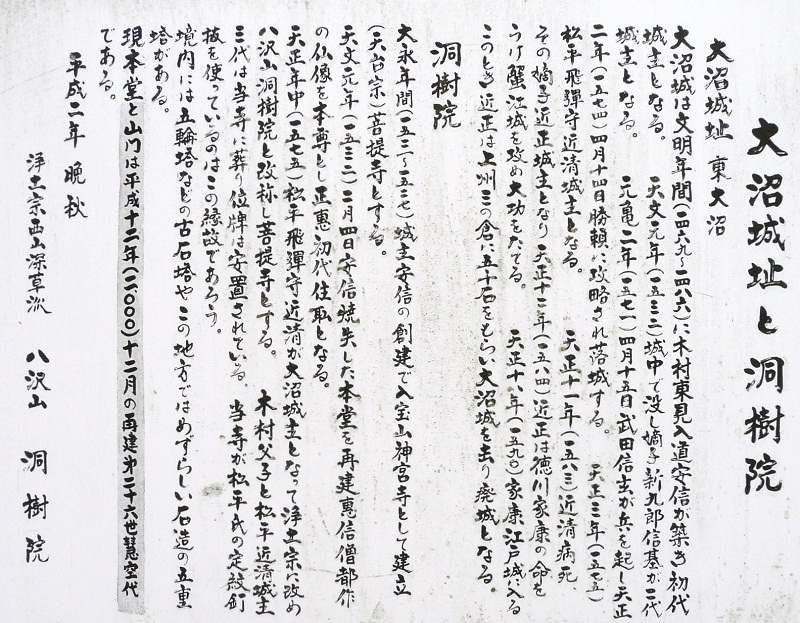 大沼城址と洞樹院
大沼城址 東大沼
大沼城は文明年間(一四六九~一四八六)に木村東見入道安信が築き初代
城主となる。 天文元年(一五三二)城中で没し嫡子新九郎信基が二代
城主となる。 元亀二年(一五七一)四月十五日武田信玄が兵を起し天正
二年(一五七四)四月十四日勝頼に攻略され落城する。 天正三年(一五七五)
松平飛彈守近清城主となる。 天正十一年(一五八三)近清病死
その嫡子近正城主となり天正十二年(一五八四)近正は徳川家康の命を
うけ蟹江城を攻め大功をたてる。 天正十八年(一五九〇)家康江戸城へ入る
このとき近正は上州三の倉に五十石をもらい大沼城を去り廃城となる。
洞樹院
大永年間(一五二一~一五二七)城主安信の創建で八宝山神宮寺として建立
(天台宗)菩提寺とする。
天文元年(一五三二)二月四日安信焼失した本堂を再建惠信僧都作
の仏像を本尊とし正惠初代住職となる。
天正年中(一五七五)松平飛彈守近清が大沼城主となって浄土宗に改め
八沢山洞樹院と改称し菩提寺とする。 木村父子と松平近清城主
三代は当寺に葬り位牌は安置されている。当寺が松平氏の定紋釘
抜を使っているのはこの縁故であろう。
境内には五輪塔などの古石塔やこの地方ではめずらしい石造の五重
塔がある。
現本堂と山門は平成十二年(二〇〇〇)十二月の再建第二十六世慧空代
である。
平成二年 晩秋
浄土宗西山深草派 八沢山 洞樹院